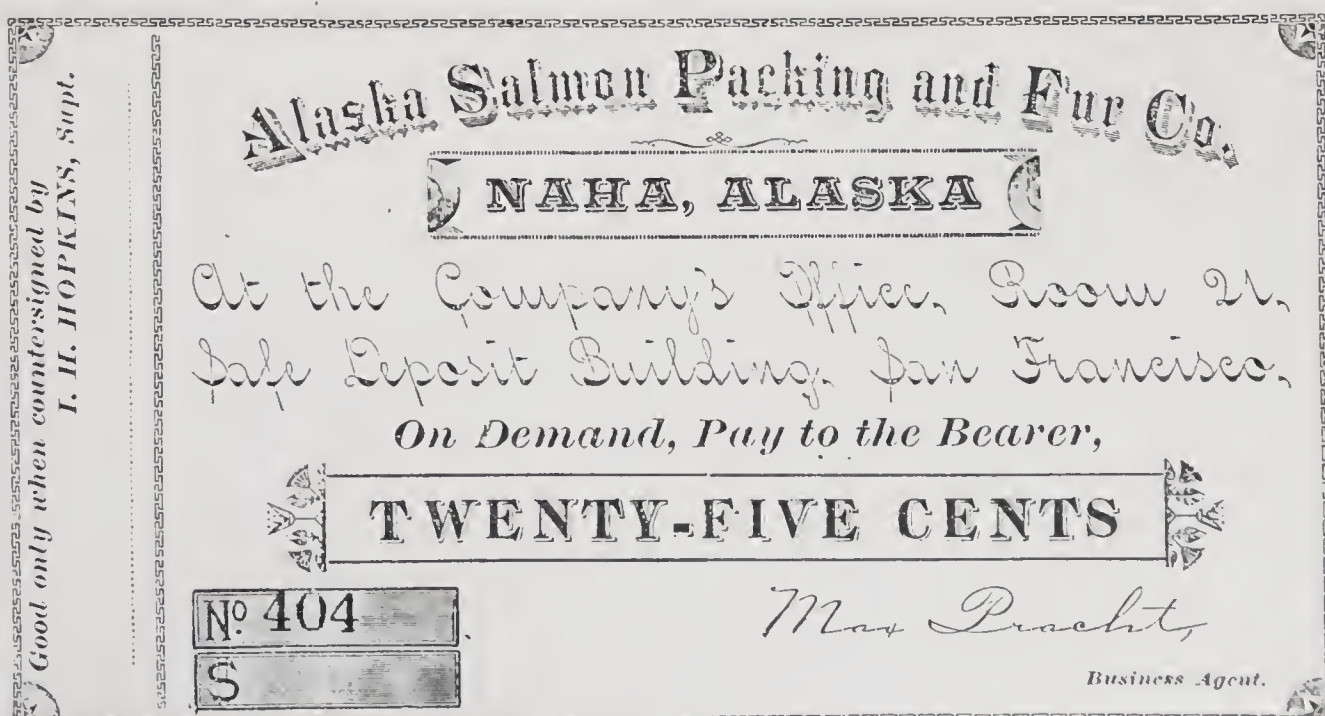 Good only when countersigned by
I. H. HOPKINS, Supt.
Alaska Salmon Packing and Fur Co.
NAHA, ALASKA
At the Company's Office, Room 21,
Safe Deposit Building, San Francisco,
On Demand, Pay to the Bearer,
TWENTY-FIVE CENTS
No. 404
S
Max Pracht,
Business Agent.